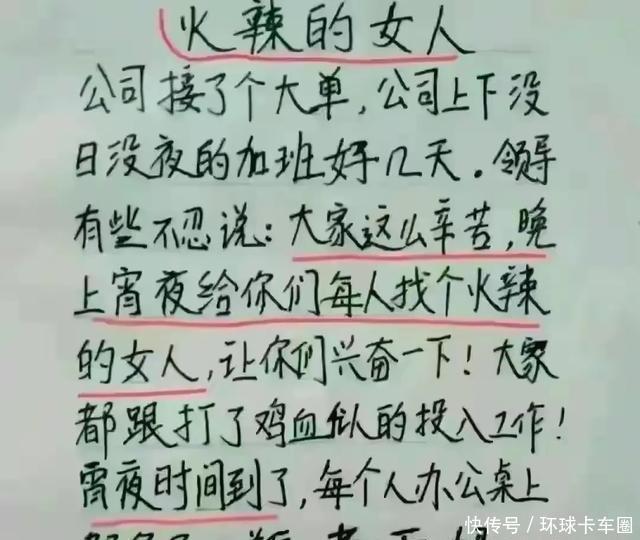 火辣的女人
公司接了个大单，公司上下没
日没夜的加班好几天。领导
有些不忍说：大家这么辛苦，晚
上宵夜给你们每人找个火辣
的女人，让你们兴奋一下！大家
都跟打了鸡血似的投入工作！
宵夜时间到了，每个人办公桌上
快传号／环球卡车圈